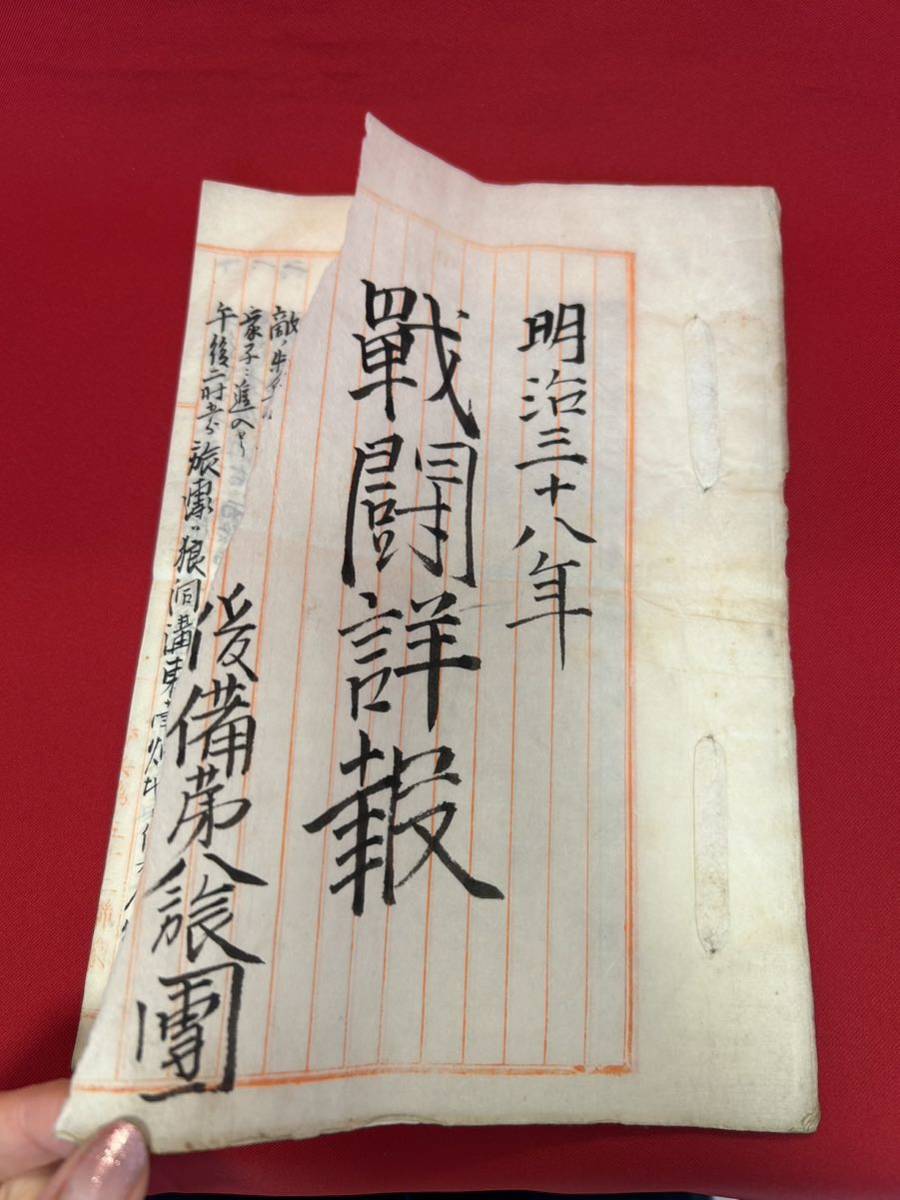 明治三十八年
戰鬪詳報
後備第八旅團
敵ノ
家子ニ進入
午後二時
旅團ハ狼洞溝東